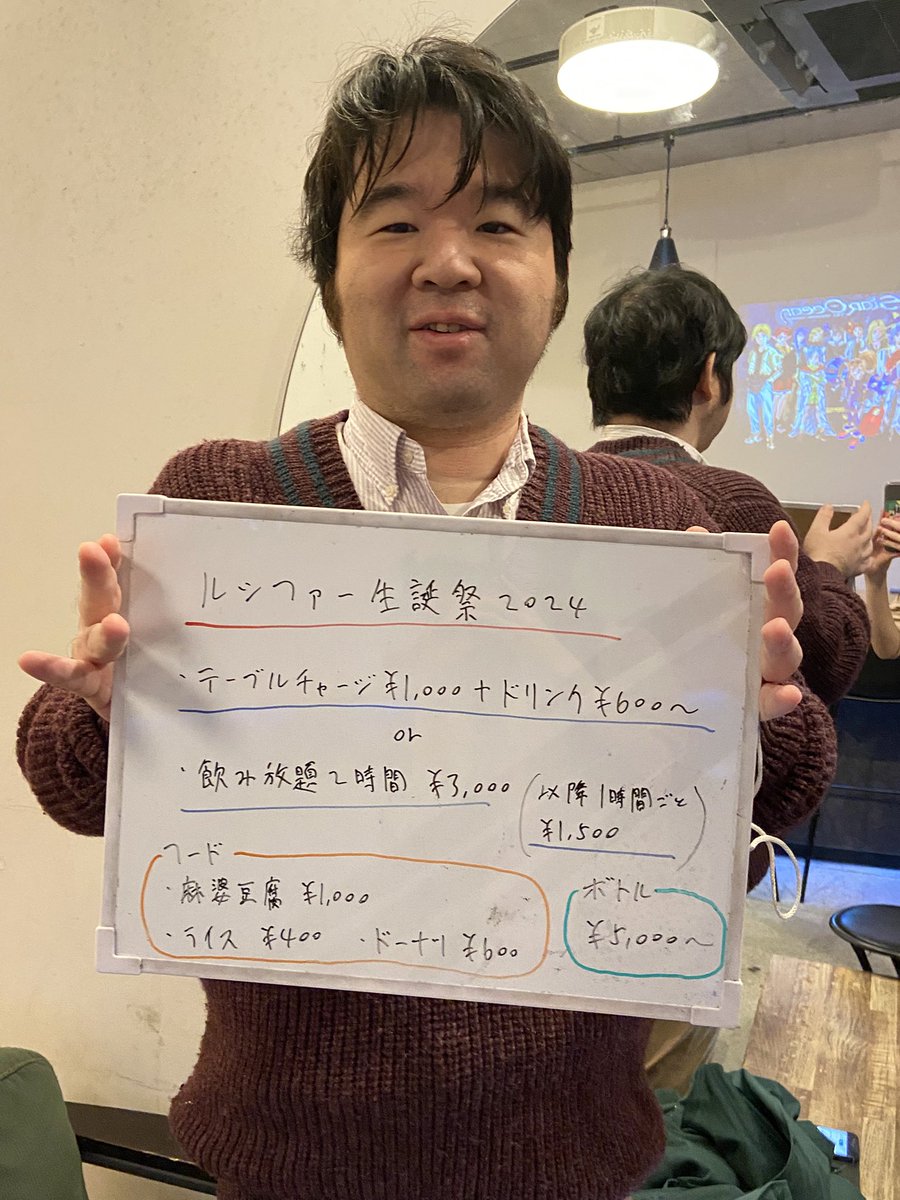 ルシファー生誕祭2024
・テーブルチャージ¥1,000+ドリンク¥600〜
or
・飲み放題2時間 ¥3,000
(以降1時間ごと
¥1,500)
フード
・麻婆豆腐 ¥1,000
・ライス ¥400 ・ドーナツ ¥600
ボトル
¥5,000〜
Star Ocean